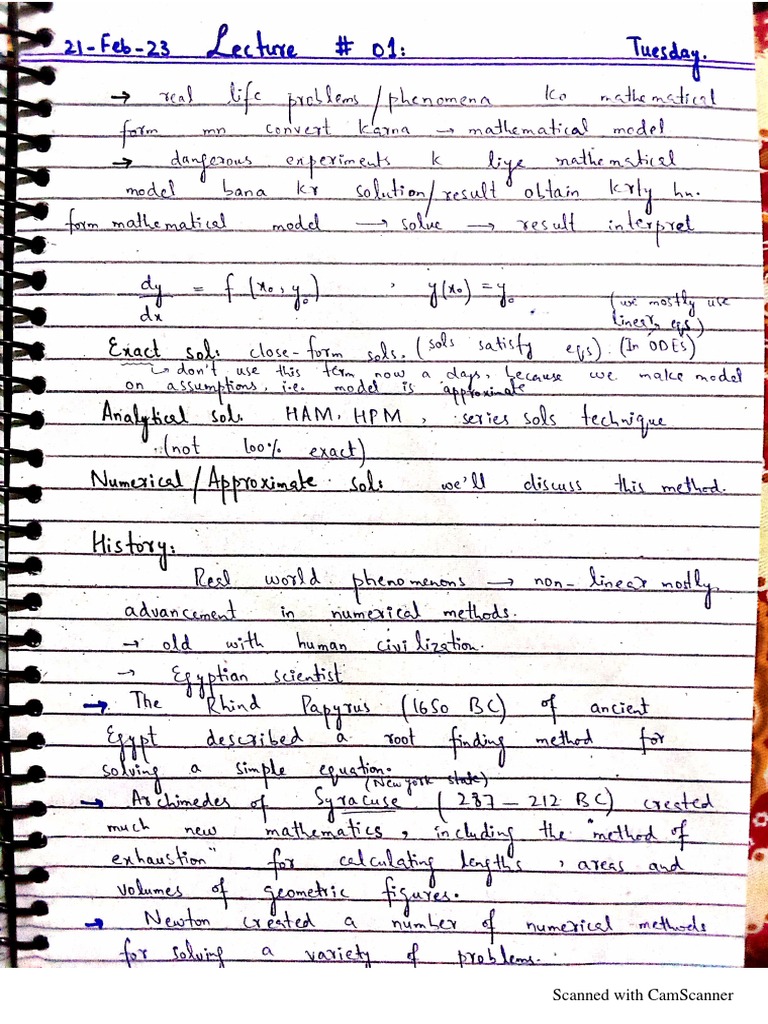 21-Feb-23 Lecture # 01: Tuesday.
→ real life problems/phenomena ko mathematical
form mn convert karna → mathematical model
→ dangerous experiments k liye mathematical
model bana kr solution/result obtain krty hn.
form mathematical model → solve → result interpret
dy/dx = f(x₀, y₀) , y(x₀) = y₀
(we mostly use
linear eqs)
Exact sol: close-form sols. (sols satisfy eqs) (In ODEs)
↳ don't use this term now a days, because we make model
on assumptions, i.e. model is approximate
Analytical sol. HAM, HPM, series sols technique
(not 100% exact)
Numerical/Approximate sol: we'll discuss this method.
History:
Real world phenomenons → non-linear mostly
advancement in numerical methods.
→ old with human civilization.
→ Egyptian scientist
→ The Rhind Papyrus (1650 BC) of ancient
Egypt described a root finding method for
solving a simple equation.
(New york state)
→ Archimedes of Syracuse (287 – 212 BC) created
much new mathematics, including the "method of
exhaustion" for calculating lengths, areas and
volumes of geometric figures.
→ Newton created a number of numerical methods
for solving a variety of problems.
Scanned with CamScanner